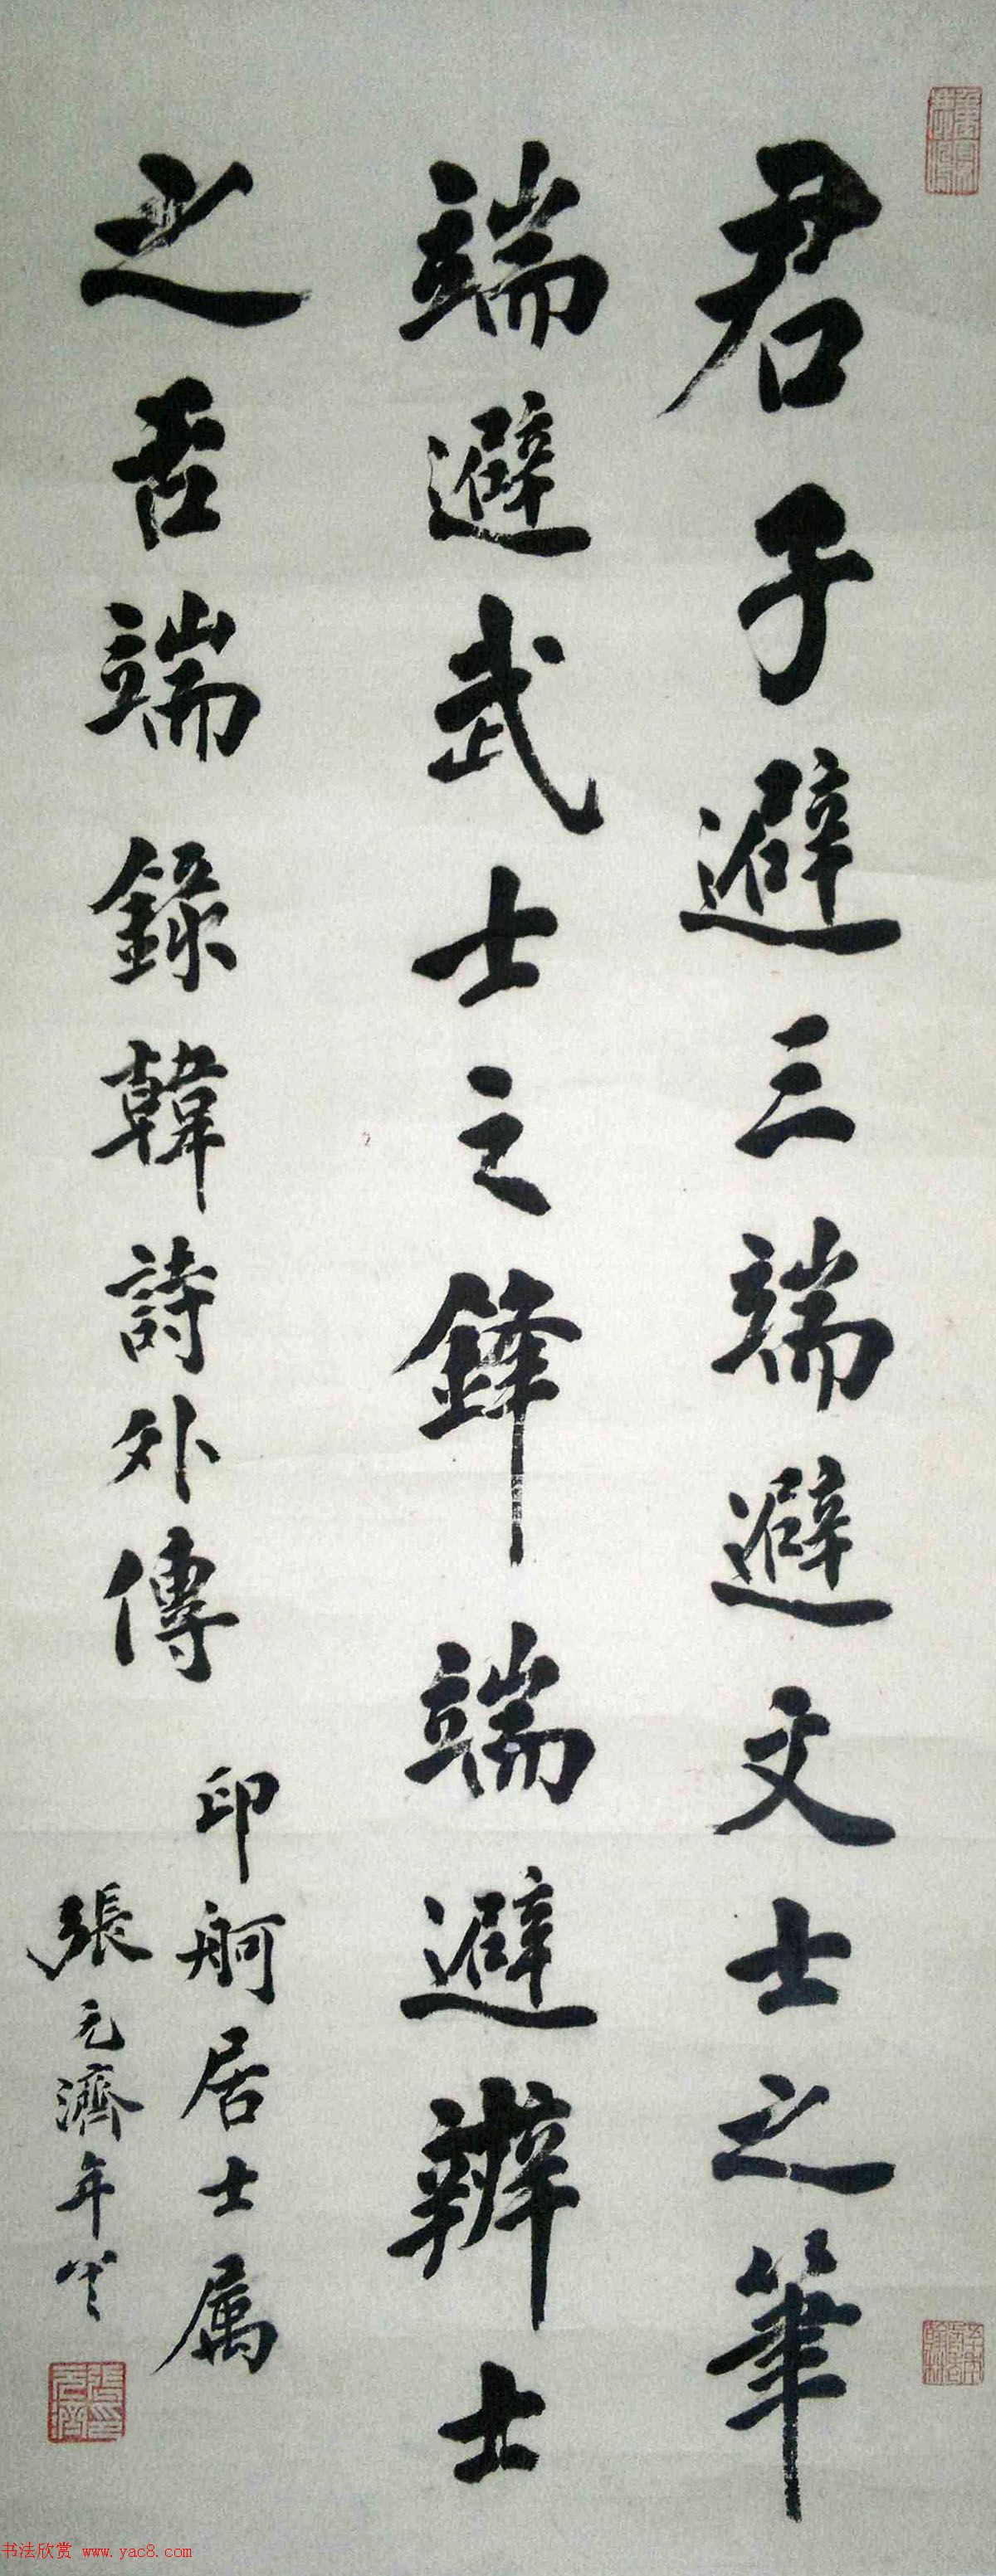 君子避三端避文士之筆
端避武士之鋒端避辯士
之舌端錄韓詩外傳
印舸居士属
張元濟年
張元濟印
书法欣赏 www.yac8.com